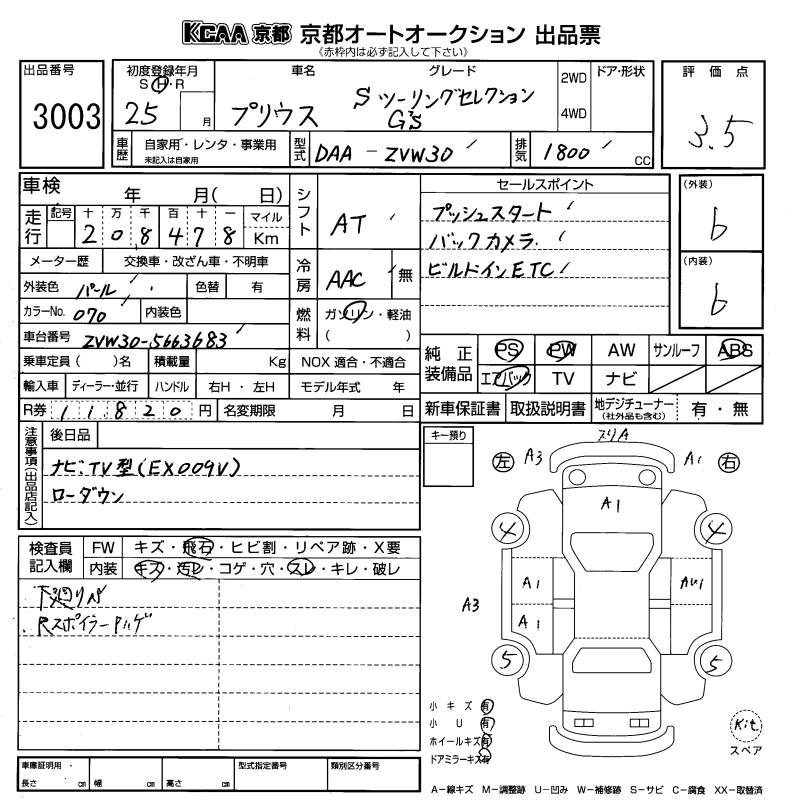 KCAA 京都 京都オートオークション 出品票
《赤枠内は必ず記入して下さい》
出品番号 3003
初度登録年月 S・H・R 25 月
車名 プリウス
グレード Sツーリングセレクション G'S
2WD 4WD
ドア・形状
評価点 3.5
車歴 自家用・レンタ・事業用 未記入は自家用
型式 DAA-ZVW30
排気 1800 cc
車検 年 月( 日)
走行 記号 十 万 千 百 十 一 マイル
2 0 8 4 7 8 Km
シフト AT
セールスポイント
プッシュスタート
バックカメラ
ビルドインETC
(外装) 6
(内装) 6
メーター歴 交換車・改ざん車・不明車
外装色 パール 色替 有
冷房 AAC 無
カラーNo. 070 内装色
燃料 ガソリン・軽油 ( )
車台番号 ZVW30-5663683
乗車定員 ( )名 積載量 Kg NOX 適合・不適合
輸入車 ディーラー・並行 ハンドル 右H・左H モデル年式 年
R券 11820 円 名変期限 月 日
純正装備品 PS PW AW サンルーフ ABS
エアバック TV ナビ
新車保証書 取扱説明書 地デジチューナー (社外品も含む) 有・無
注意事項(出品店記入) 後日品
ナビ、TV型(EX009V)
ローダウン
キー預り
検査員記入欄 FW キズ・飛石・ヒビ割・リペア跡・X要
内装 キズ・汚レ・コゲ・穴・スレ・キレ・破レ
下廻りサビ
Rスポイラー
スリA
左 A3 A1 右
A1
4 4
A1 AU1
A3 A1
5 5
小キズ 有
小U 有
ホイールキズ 有
ドアミラーキズ 有
Kit
スペア
車庫証明用
長さ cm 幅 cm 高さ cm
型式指定番号 類別区分番号
A-線キズ M-調整跡 U-凹み W-補修跡 S-サビ C-腐食 XX-取替済